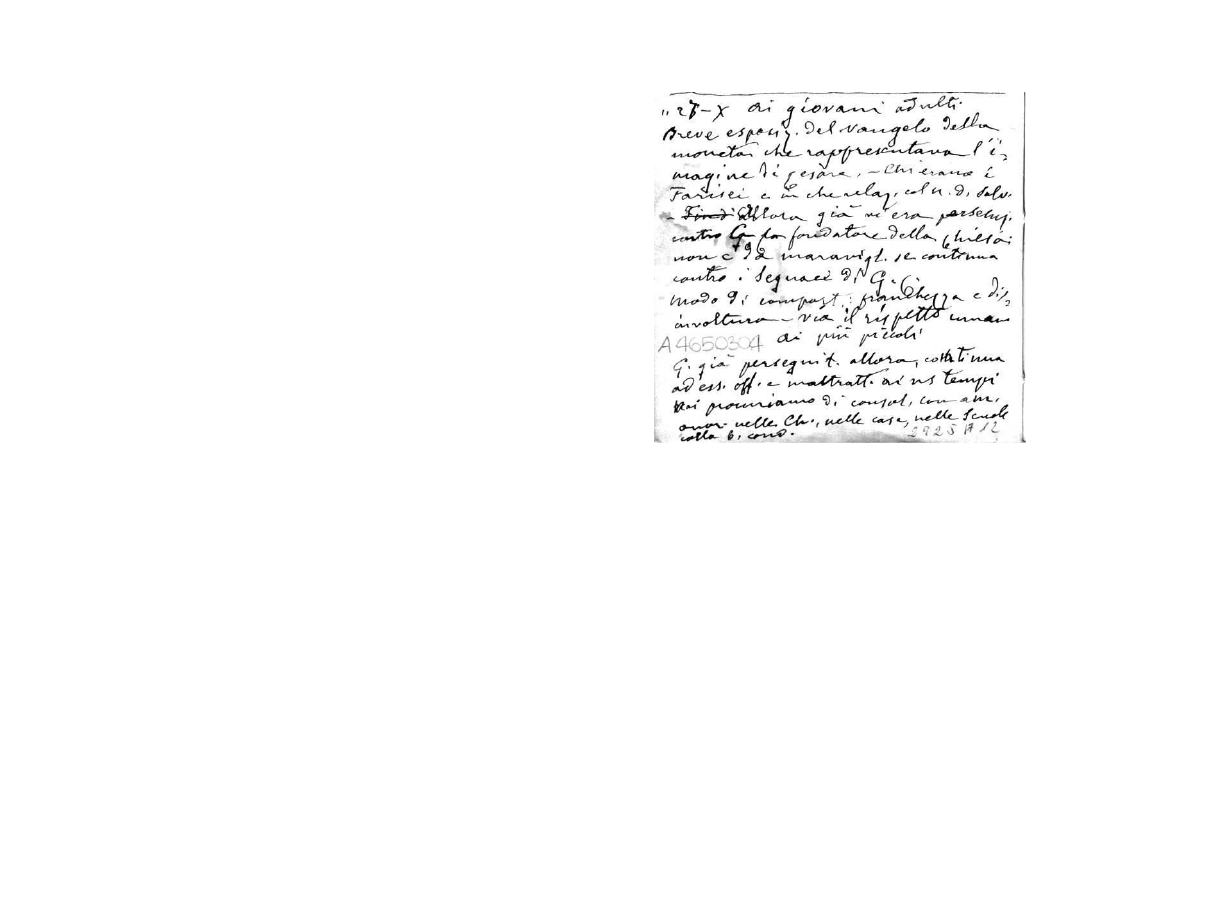 " 27-X Ai giovani adulti.
Breve esposiz. del vangelo della
moneta che rappresentava l'i-
magine di Cesare. - Chi erano i
Farisei e in che relaz. col n. d. Salv.
- Allora già vi era persecuz.
contro G. fondatore della Chiesa:
non è da maravigl. se continua
contro i seguaci di G. C.
modo di comport.: franchezza e dis-
involtura - via il rispetto umano
A4650304 ai più piccoli
G. già perseguit. allora, continua
ad ess. off. e maltratt. ai ns tempi
Noi procuriamo di consol. con am.
onor. nelle Ch., nelle case, nelle Scuole
colla b. cond.
2925